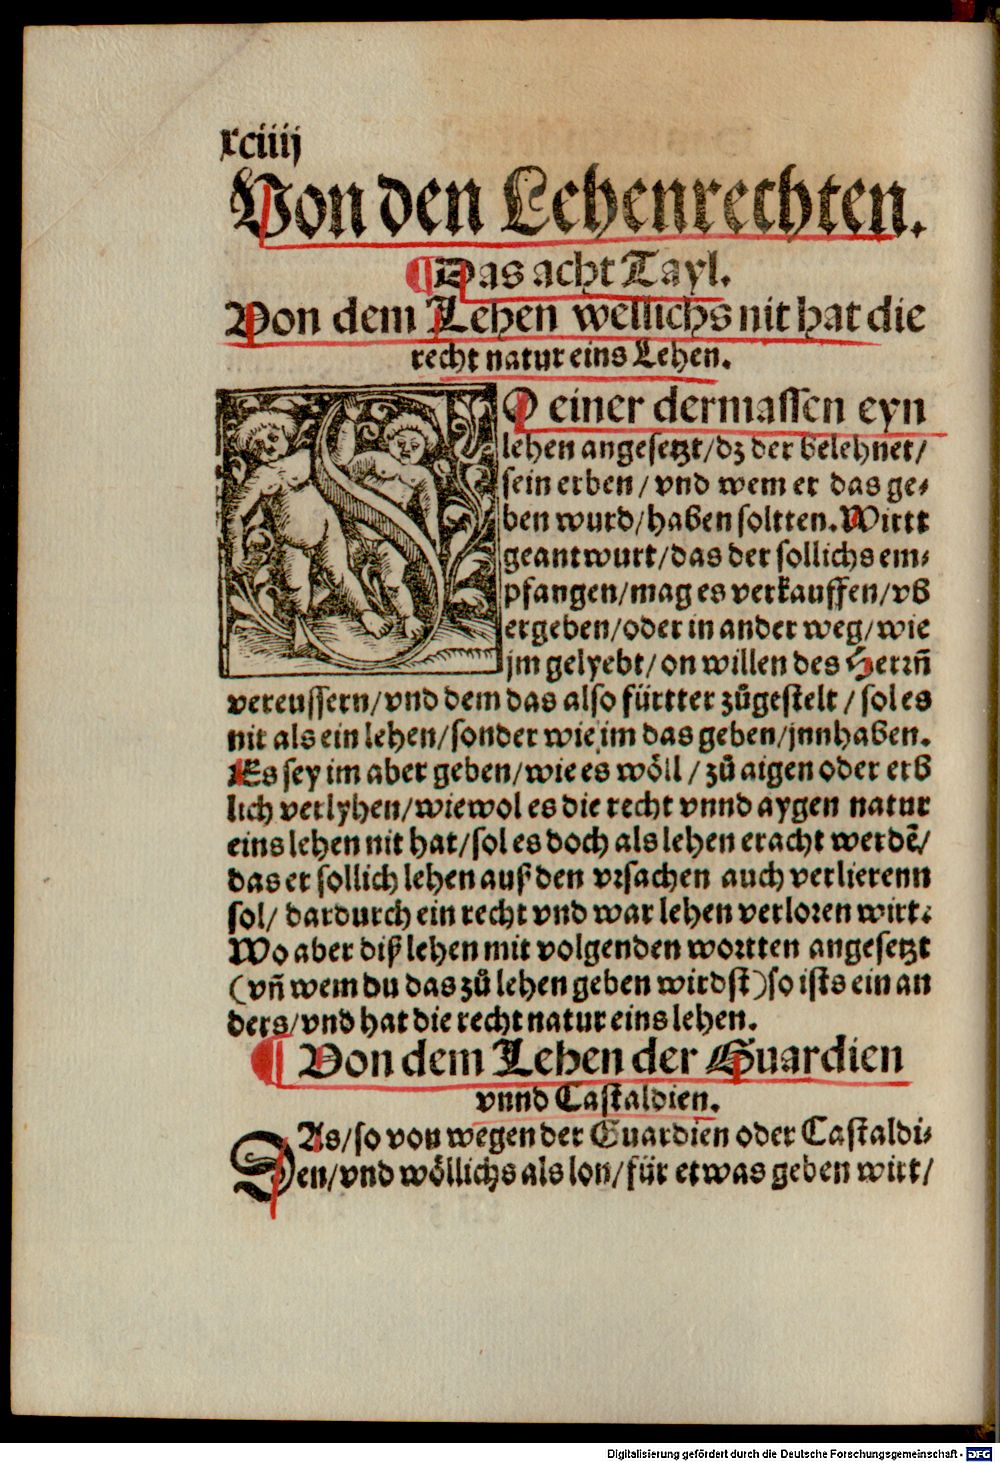 xciiij
Von den Lehenrechten.
¶ Das acht Tayl.
Von dem Lehen wellichs nit hat die
recht natur eins Lehen.
SO einer dermassen eyn
lehen angesetzt/dz der belehnet/
sein erben/vnd wem er das ge⸗
ben wurd/haben soltten. Wirtt
geantwurt/das der sollichs em⸗
pfangen/mag es verkauffen/vß
ergeben/oder in ander weg/wie
jm gelyebt/on willen des Herrn̄
vereussern/vnd dem das also fürtter zůgestelt/sol es
nit als ein lehen/sonder wie im das geben/jnnhaben.
Es sey im aber geben/wie es wöll/zů aigen oder erb
lich verlyhen/wiewol es die recht vnnd aygen natur
eins lehen nit hat/sol es doch als lehen eracht werdē/
das er sollich lehen auß den vrsachen auch verlierenn
sol/dardurch ein recht vnd war lehen verloren wirt.
Wo aber diß lehen mit volgenden wortten angesetzt
(vn̄ wem du das zů lehen geben wirdst)so ists ein an
ders/vnd hat die recht natur eins lehen.
¶ Von dem Lehen der Guardien
vnnd Castaldien.
DAs/so von wegen der Guardien oder Castaldi⸗
en/vnd wöllichs als lon/für etwas geben wirt/
Digitalisierung gefördert durch die Deutsche Forschungsgemeinschaft - DFG